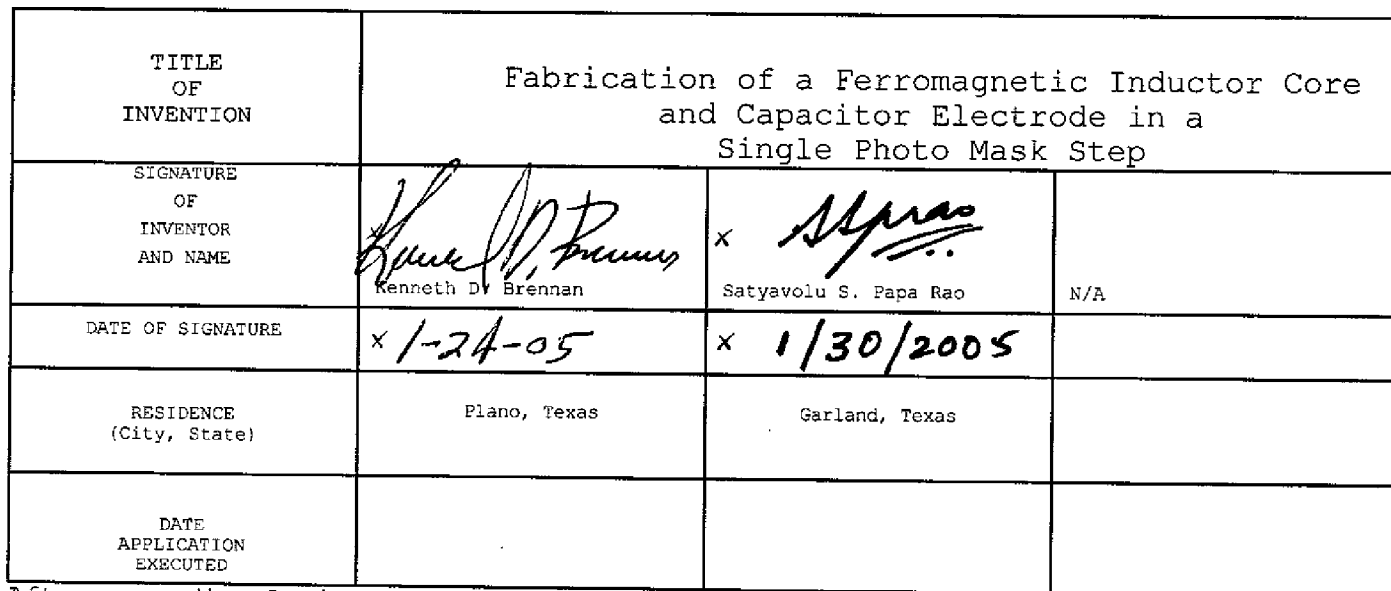 TITLE
OF
INVENTION
Fabrication of a Ferromagnetic Inductor Core
and Capacitor Electrode in a
Single Photo Mask Step
SIGNATURE
OF
INVENTOR
AND NAME
x
Kenneth D. Brennan
x
Satyavolu S. Papa Rao
N/A
DATE OF SIGNATURE
x 1-24-05
x 1/30/2005
RESIDENCE
(City, State)
Plano, Texas
Garland, Texas
DATE
APPLICATION
EXECUTED